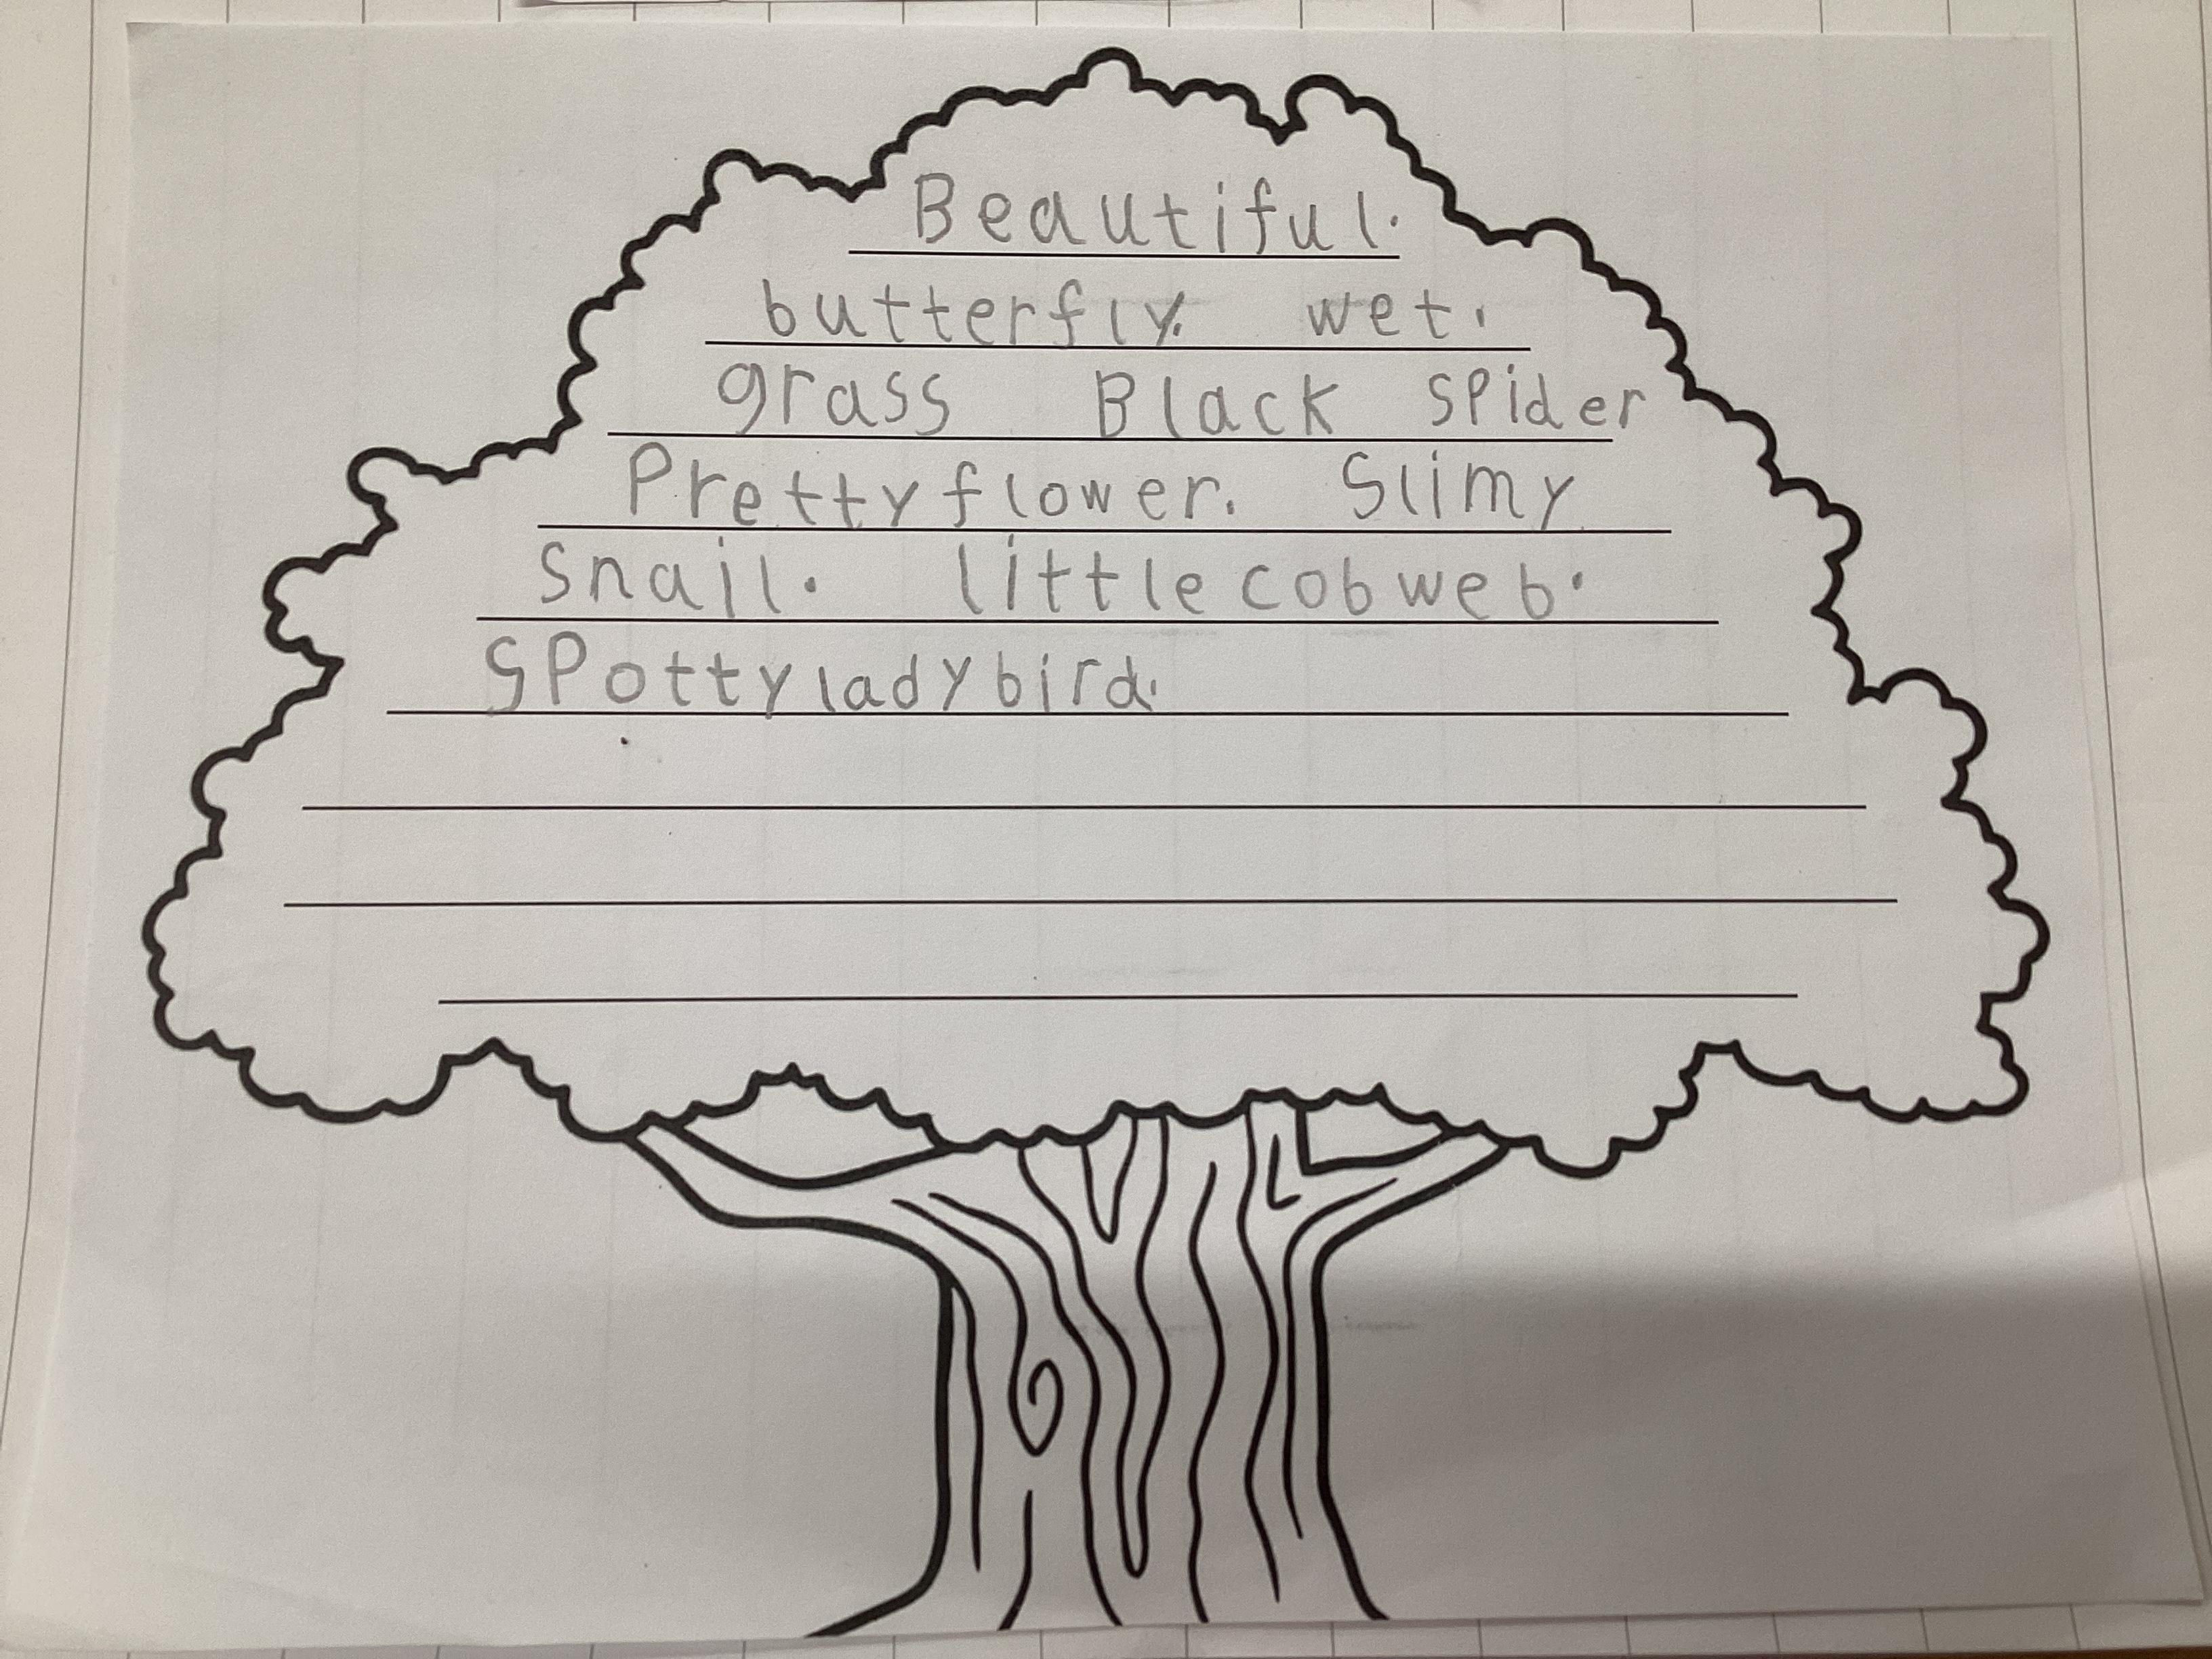 Beautiful.
butterfly. wet.
grass Black spider
Pretty flower. Slimy
snail. little cobweb.
SPotty ladybird.